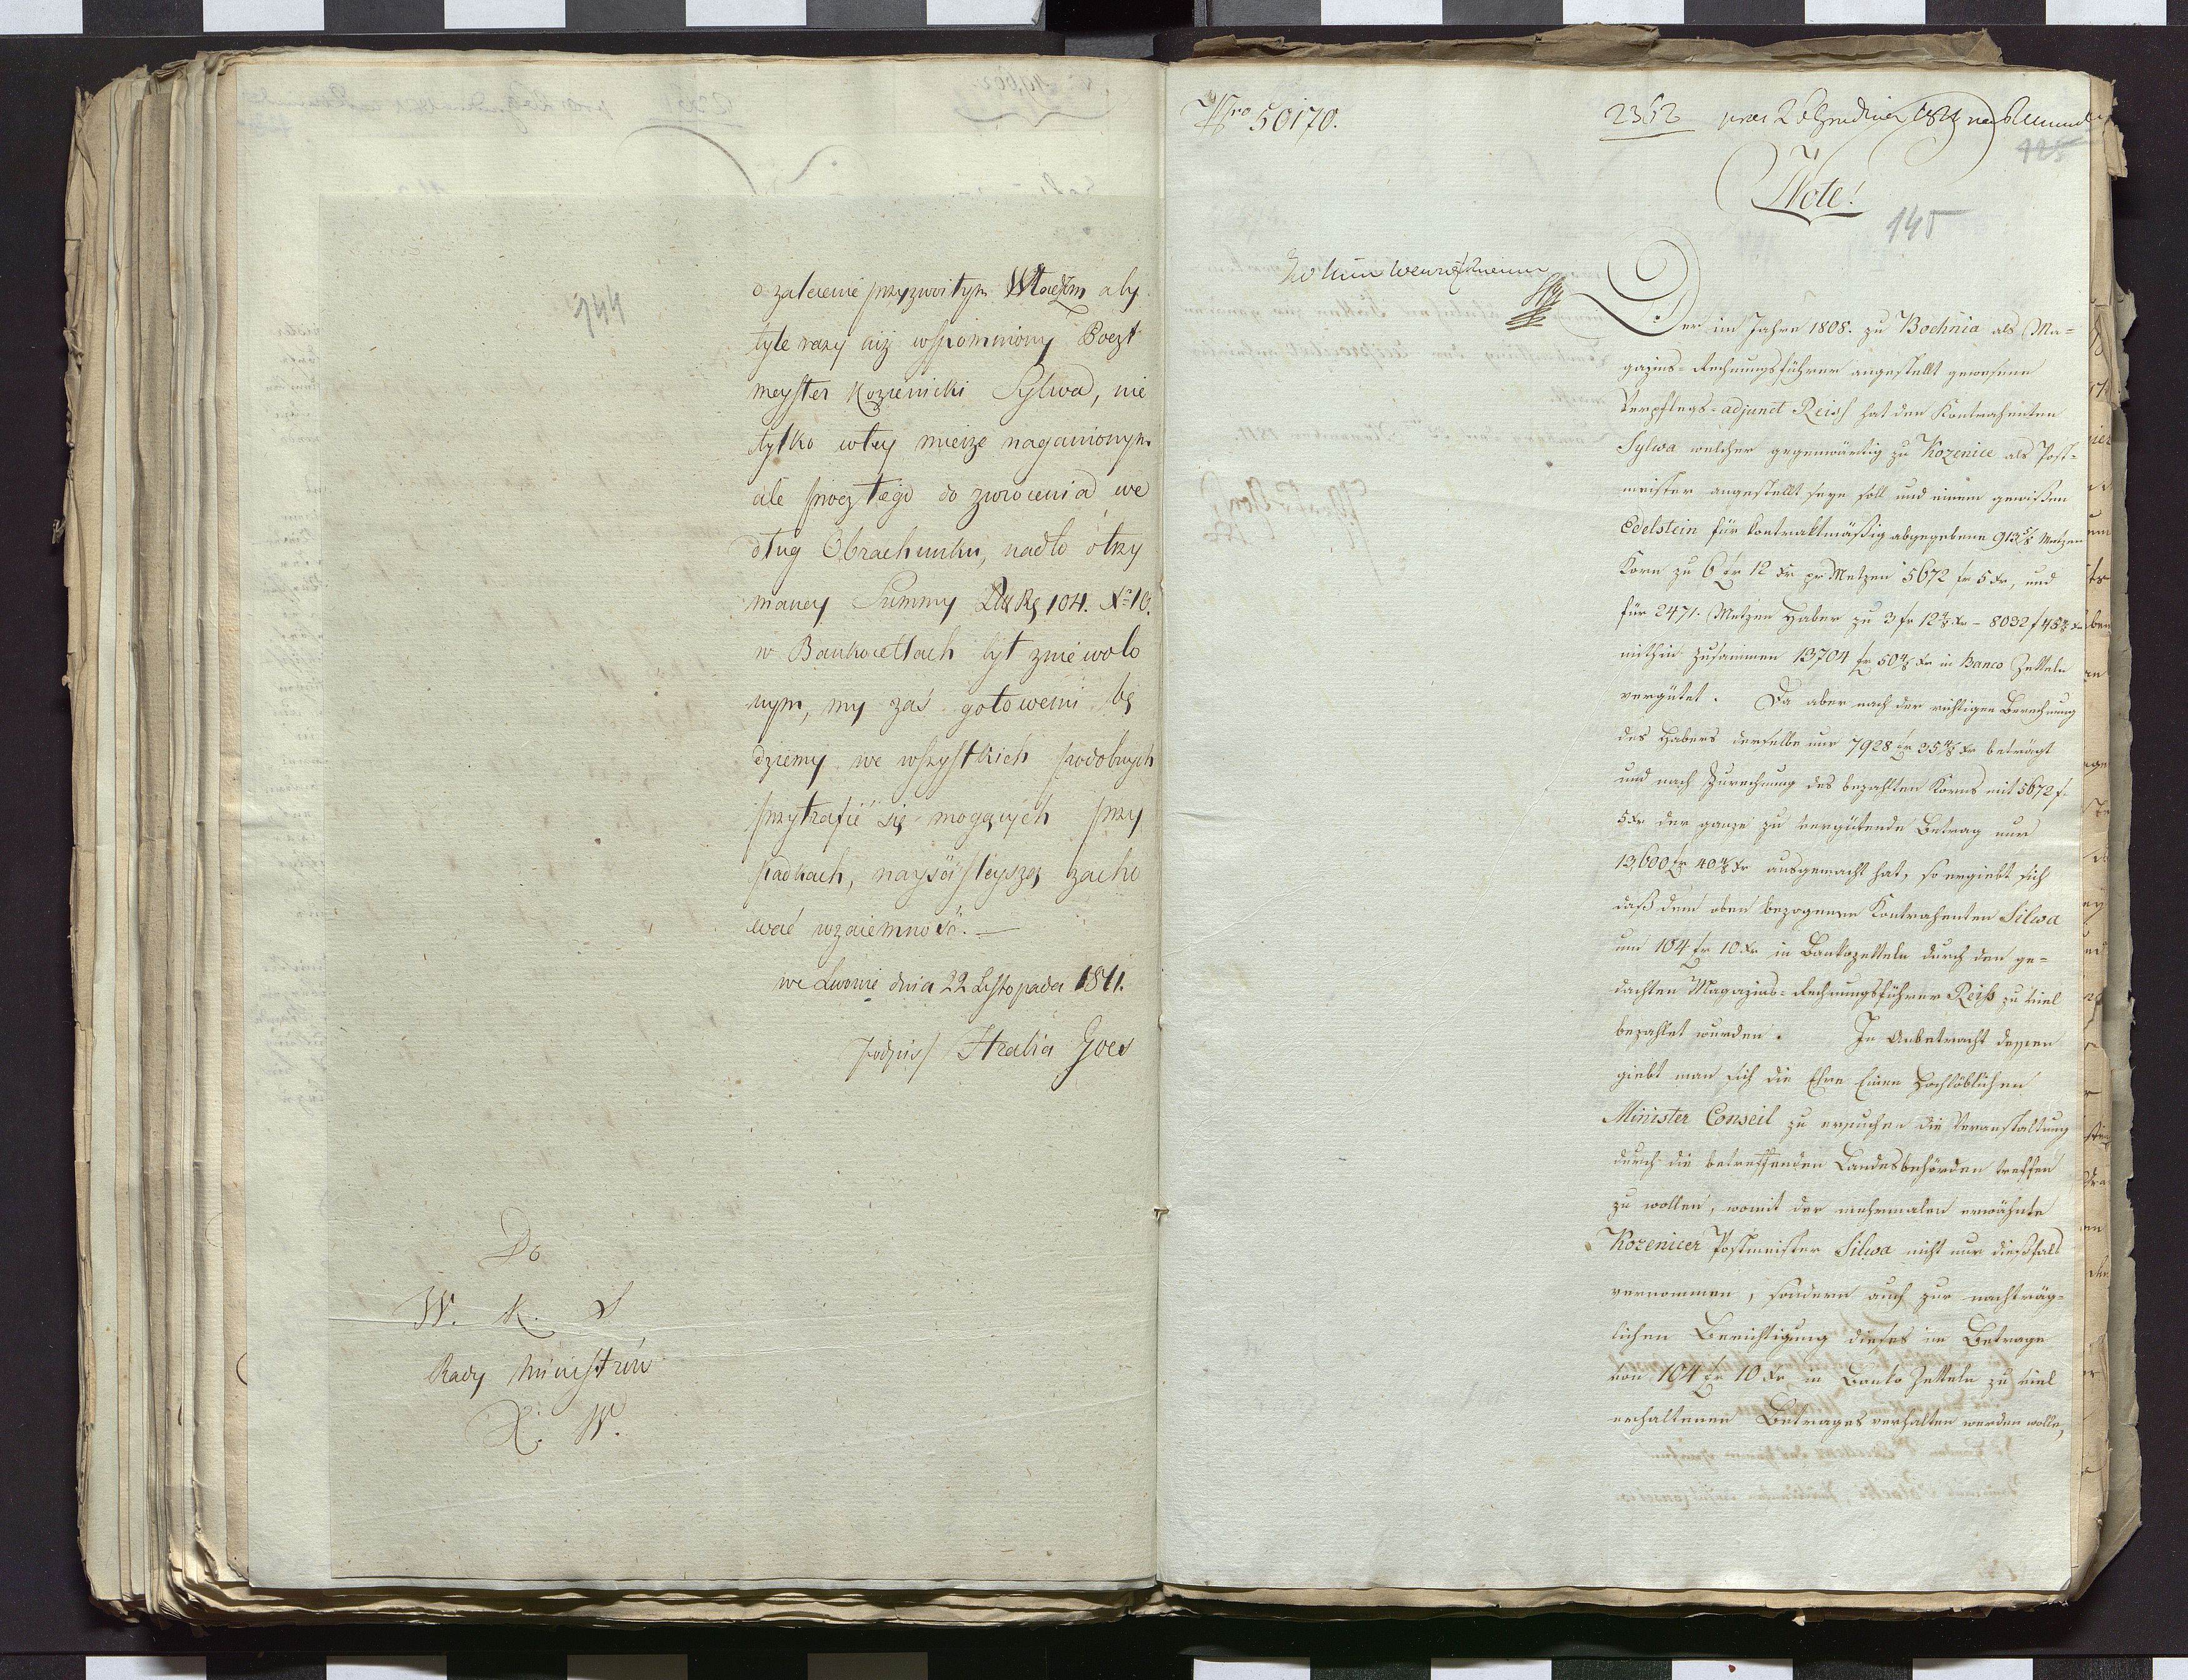 144
o zalecenie przyzwoitym Władzom aby
tyle razy iuż wspomniony Poczt
meyster Kozienicki Sylwa, nie
tylko wtey mierze naganionym
ale prócz tego do zwrocenia we
dług Obrachunku, nadto otrzy
maney Summy 104. 10.
w Bankocetlach był zniewolo
nym, my zaś gotowemi bę
dziemy we wszystkich podobnych
przytrafić się mogących przy
padkach, nayściśleyszą zacho
wać wzaiemność.—
we Lwowie dnia 22 Listopada 1811.
podpis/ Hrabia Goes
Do
W. K. S
Rady Ministrów
X. W.
Nro 50170.
2352 pres 26 Grudnia 1811
125
Note!
145
Der im Jahre 1808. zu Bochnia als Ma-
gazins-Rechnungsführer angestellt gewesene
Verpflegs-adjunct Reiss hat den Kontrahenten
Sylwa welcher gegenwärtig zu Kozenice als Post-
meister angestellt seyn soll und einem gewißen
Edelstein für kontraktmäßig abgegebene 913 5/8 Metzen
Korn zu 6 fr 12 Xr pr Metzen 5672 fr 5 Xr, und
für 2471. Metzen Haber zu 3 fr 12 4/8 Xr – 8032 f 45 4/8 Xr
mithin zusammen 13704 fr 50 4/8 Xr in Banco Zetteln
vergütet. Da aber nach der richtigen Berechnung
des Habers derselbe nur 7928 fr 35 4/8 Xr beträgt
und nach Zurechnung des bezahlten Korns mit 5672 f.
5 Xr der ganze zu vergütende Betrag nur
13,600 fr 40 4/8 Xr ausgemacht hat, so ergiebt sich
daß dem oben bezogenen Kontrahenten Silwa
um 104 fr 10 Xr in Bankozetteln durch den ge-
dachten Magazins-Rechnungsführer Reiß zu viel
bezahlet wurden. In Anbetracht dessen
giebt man sich die Ehre Einen Hochlöblichen
Minister Conseil zu ersuchen die Veranstaltung
durch die betreffenden Landesbehörden treffen
zu wollen, womit der mehrmalen erwähnte
Kozenicer Postmeister Silwa nicht nur diesfals
vernommen, sondern auch zur nachträg-
lichen Berichtigung dieses im Betrage
von 104 fr 10 Xr in Banko Zetteln zu viel
erhaltenen Betrages verhalten werden wolle,